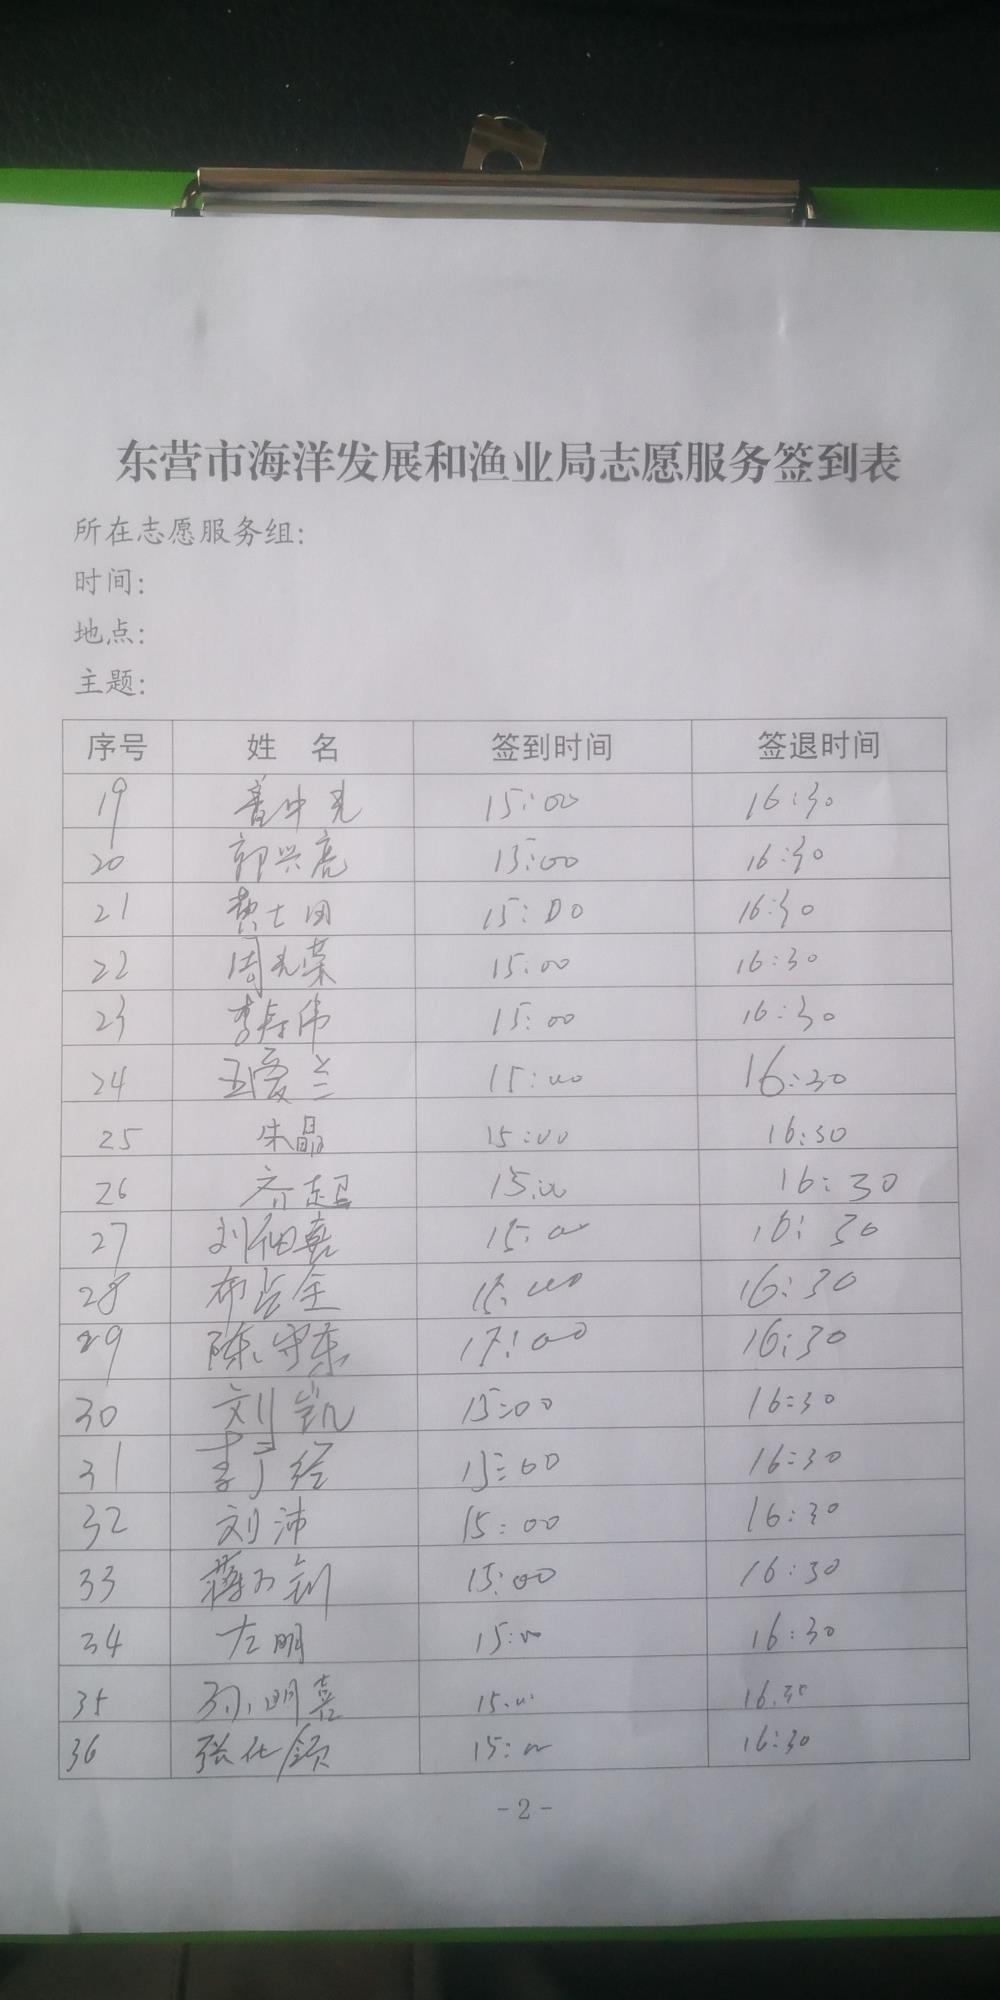 东营市海洋发展和渔业局志愿服务签到表
所在志愿服务组:
时间:
地点:
主题:
序号 姓 名 签到时间 签退时间
19 15:00 16:30
20 郭兴亮 15:00 16:30
21 费士田 15:00 16:30
22 周光荣 15:00 16:30
23 李寿伟 15:00 16:30
24 王爱兰 15:00 16:30
25 朱晶 15:00 16:30
26 齐超 15:00 16:30
27 刘细嘉 15:00 16:30
28 布占全 15:00 16:30
29 陈守东 15:00 16:30
30 刘凯 15:00 16:30
31 15:00 16:30
32 刘沛 15:00 16:30
33 15:00 16:30
34 左明 15:00 16:30
35 孙明喜 15:00 16:30
36 张化领 15:00 16:30
- 2 -